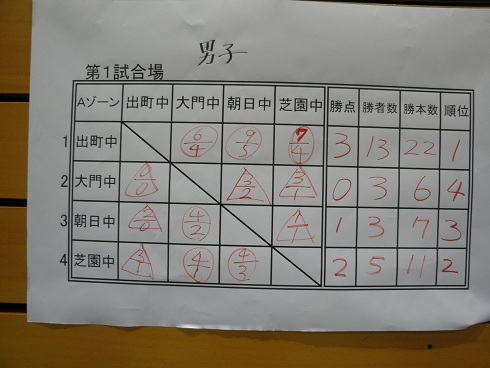 男子
第1試合場
Aゾーン 出町中 大門中 朝日中 芝園中 勝点 勝者数 勝本数 順位
1 出町中 6/4 9/5 7/4 3 13 22 1
2 大門中 0/0 3/2 3/1 0 3 6 4
3 朝日中 2/0 4/2 1/1 1 3 7 3
4 芝園中 3/1 4/1 4/3 2 5 11 2